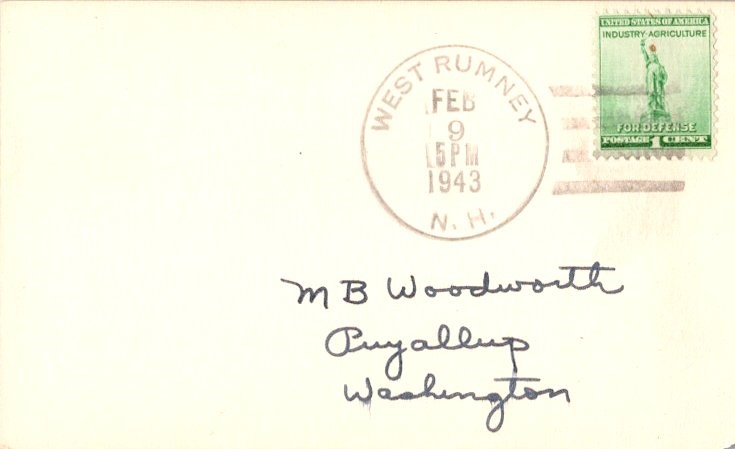 UNITED STATES OF AMERICA
INDUSTRY AGRICULTURE
FOR DEFENSE
POSTAGE 1 CENT
WEST RUMNEY
FEB
9
5PM
1943
N. H.
M B Woodworth
Puyallup
Washington